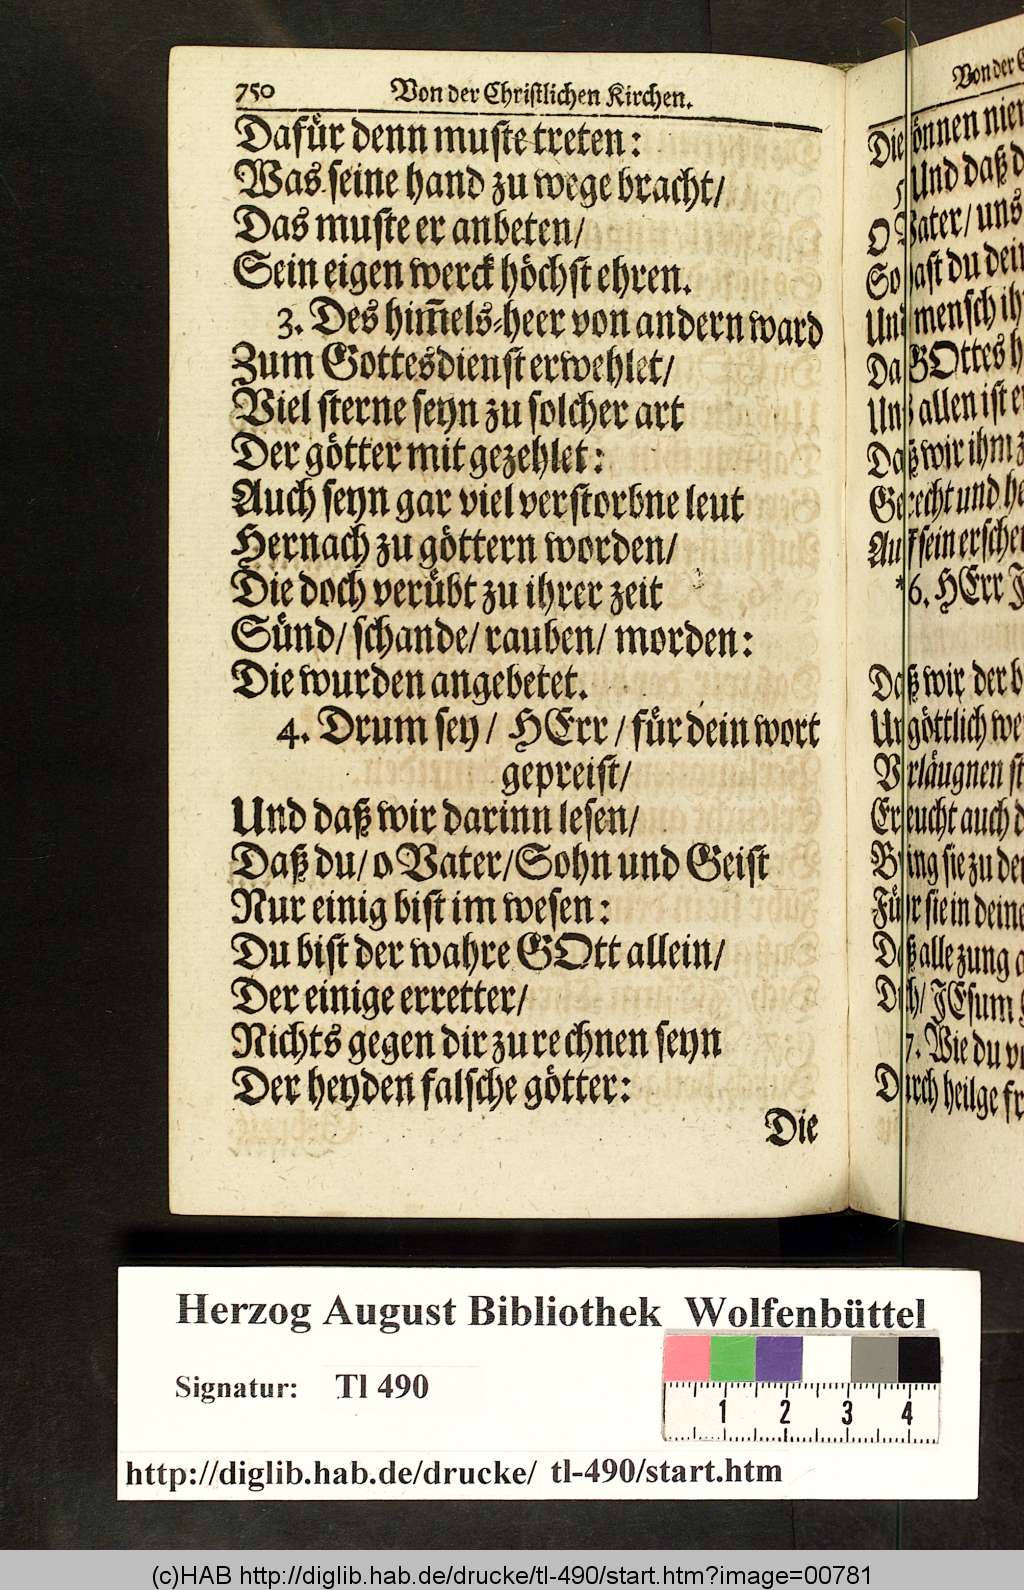 750 Von der Christlichen Kirchen.
Dafür denn muste treten:
Was seine hand zu wege bracht/
Das muste er anbeten/
Sein eigen werck höchst ehren.
3. Des him̃els-heer von andern ward
Zum Gottesdienst erwehlet/
Viel sterne seyn zu solcher art
Der götter mit gezehlet:
Auch seyn gar viel verstorbne leut
Hernach zu göttern worden/
Die doch verübt zu ihrer zeit
Sünd/ schande/ rauben/ morden:
Die wurden angebetet.
4. Drum sey/ HErr/ für dein wort
gepreist/
Und daß wir darinn lesen/
Daß du/ o Vater/Sohn und Geist
Nur einig bist im wesen:
Du bist der wahre GOtt allein/
Der einige erretter/
Nichts gegen dir zu rechnen seyn
Der heyden falsche götter:
Die
Von der
Die können
Und daß
O Vater/ uns
So hast du
Und mensch
Da GOttes
Uns allen ist
Daß wir ihm
Gerecht und
Auf sein
*6. HErr
Daß wir der
Ungöttlich
Verläugnen
Erleucht auch
Bring sie zu
Führ sie in
Daß alle zung
Dich/ JEsum
7. Wie du
Durch heilge
Herzog August Bibliothek Wolfenbüttel
Signatur: Tl 490
1 2 3 4
http://diglib.hab.de/drucke/ tl-490/start.htm
(c)HAB http://diglib.hab.de/drucke/tl-490/start.htm?image=00781